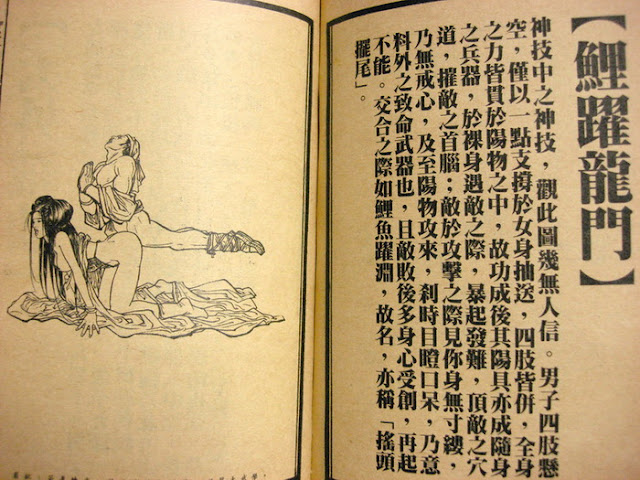 【鯉躍龍門】
神技中之神技，觀此圖幾無人信。男子四肢懸
空，僅以一點支撐於女身抽送，四肢皆併，全身
之力皆貫於陽物之中，故功成後其陽具亦成隨身
之兵器，於裸身遇敵之際，暴起發難，頂敵之穴
道，摧敵之首腦；敵於攻擊之際見你身無寸縷，
乃無戒心，及至陽物攻來，剎時目瞪口呆，乃意
料外之致命武器也，且敵敗後多身心受創，再起
不能。交合之際如鯉魚躍淵，故名，亦稱「搖頭
擺尾」。